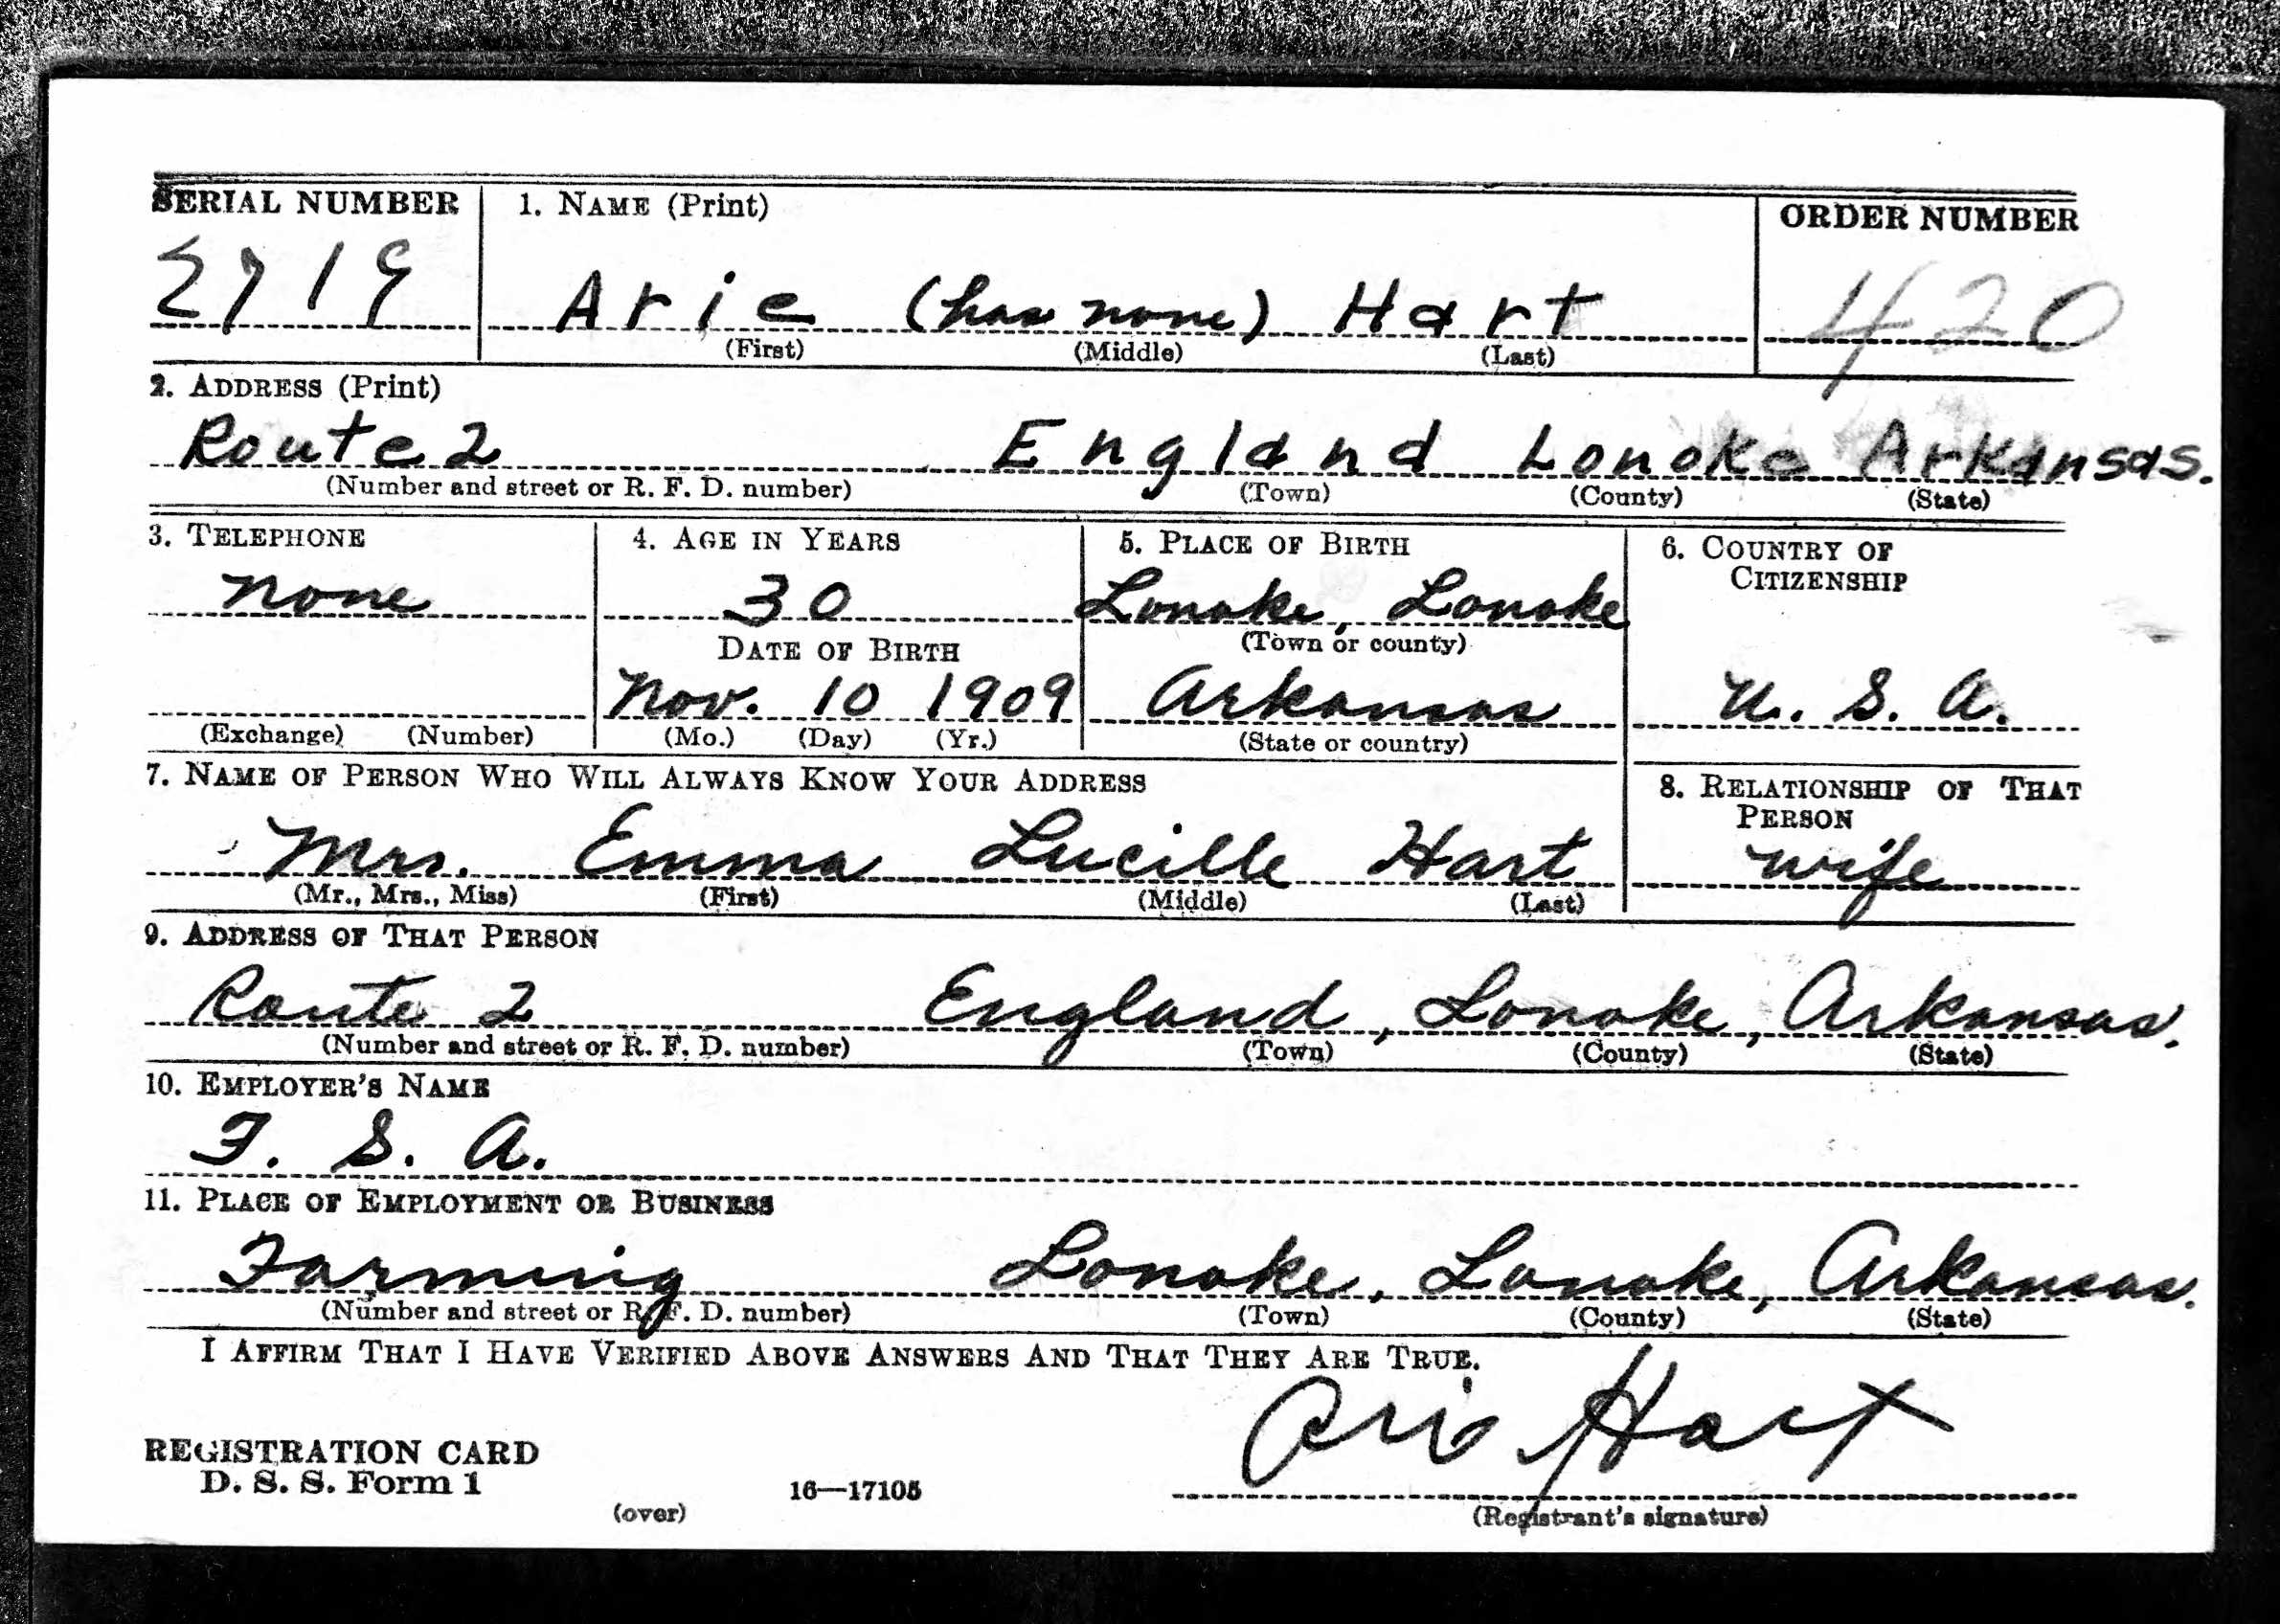 SERIAL NUMBER 1. NAME (Print) ORDER NUMBER
2719 Arie (has none) Hart 420
(First) (Middle) (Last)
2. ADDRESS (Print)
Route 2 England Lonoke Arkansas.
(Number and street or R. F. D. number) (Town) (County) (State)
3. TELEPHONE 4. AGE IN YEARS 5. PLACE OF BIRTH 6. COUNTRY OF
CITIZENSHIP
none 30 Lonoke, Lonoke
DATE OF BIRTH (Town or county)
Nov. 10 1909 Arkansas U. S. A.
(Exchange) (Number) (Mo.) (Day) (Yr.) (State or country)
7. NAME OF PERSON WHO WILL ALWAYS KNOW YOUR ADDRESS 8. RELATIONSHIP OF THAT
PERSON
Mrs. Emma Lucille Hart wife
(Mr., Mrs., Miss) (First) (Middle) (Last)
9. ADDRESS OF THAT PERSON
Route 2 England, Lonoke, Arkansas.
(Number and street or R. F. D. number) (Town) (County) (State)
10. EMPLOYER'S NAME
F. S. A.
11. PLACE OF EMPLOYMENT OR BUSINESS
Farming Lonoke, Lonoke, Arkansas.
(Number and street or R. F. D. number) (Town) (County) (State)
I AFFIRM THAT I HAVE VERIFIED ABOVE ANSWERS AND THAT THEY ARE TRUE.
Arie Hart
REGISTRATION CARD
D. S. S. Form 1 16—17105
(over) (Registrant's signature)